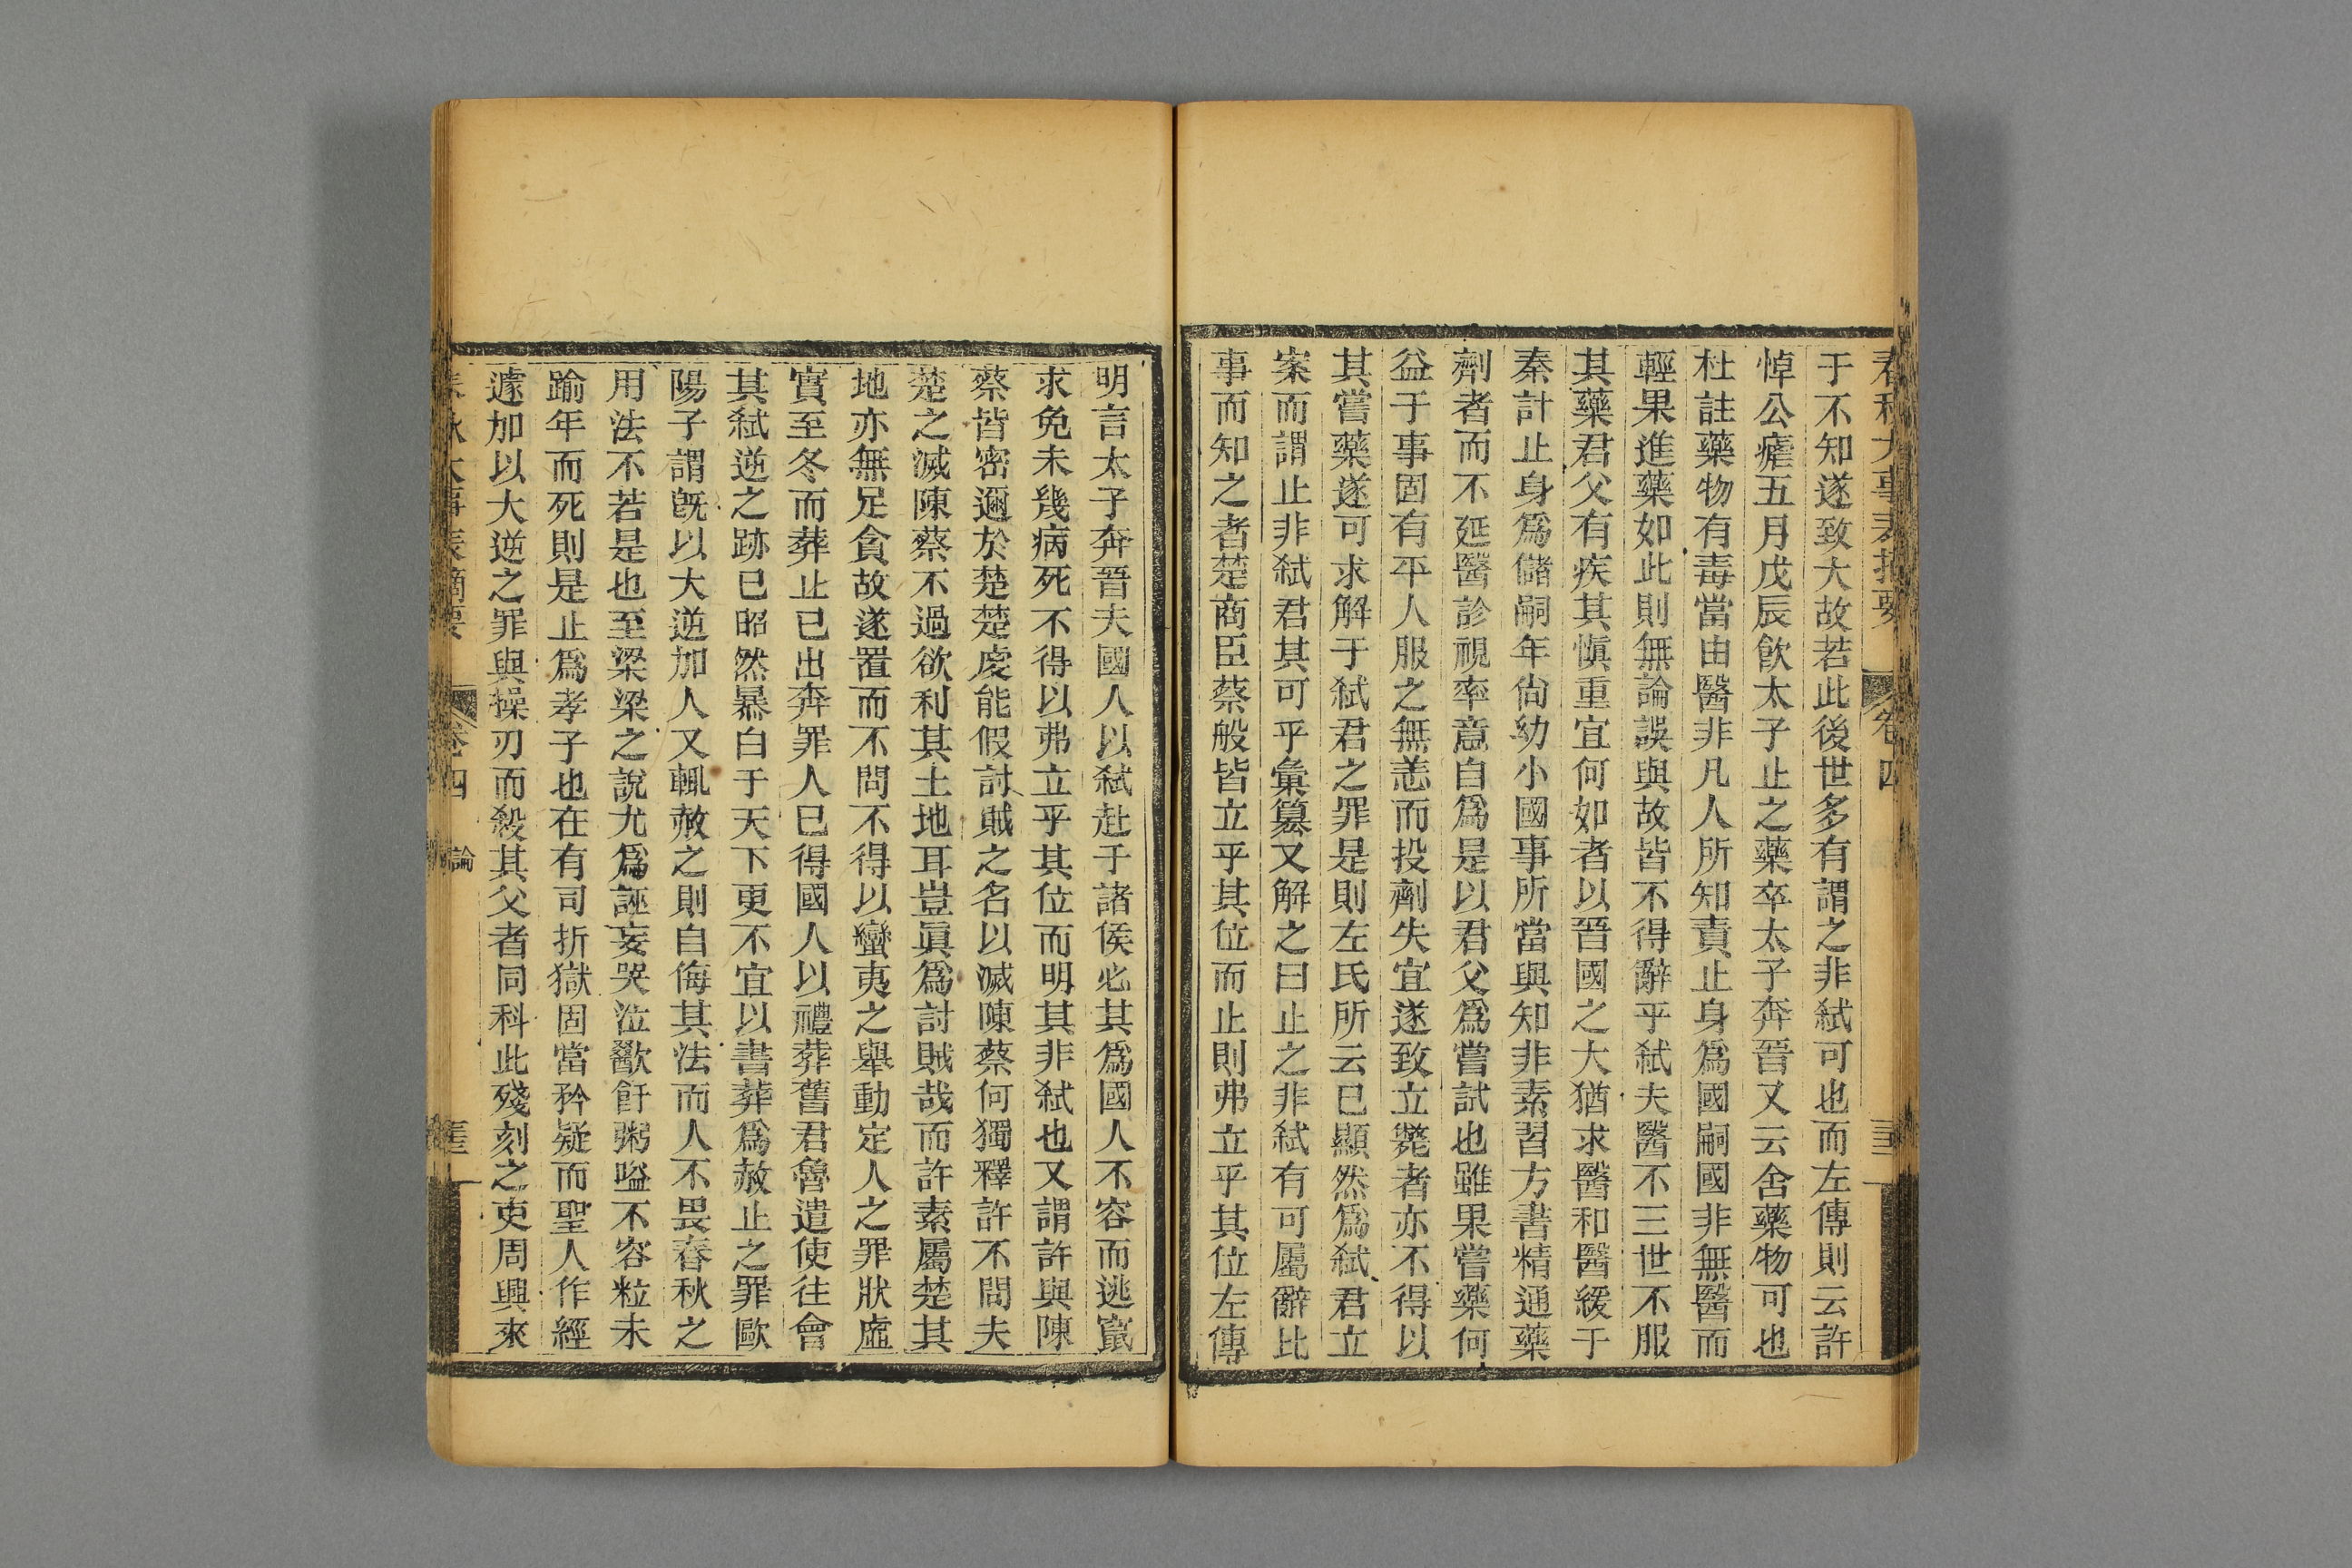 春秋大事表摘要 卷四
于不知遂致大故若此後世多有謂之非弒可也而左傳則云許
悼公瘧五月戊辰飲太子止之藥卒太子奔晉又云舍藥物可也
杜註藥物有毒當由醫非凡人所知責止身爲國嗣國非無醫而
輕果進藥如此則無論誤與故皆不得辭乎弒夫醫不三世不服
其藥君父有疾其愼重宜何如者以晉國之大猶求醫和醫緩于
秦計止身爲儲嗣年尙幼小國事所當與知非素習方書精通藥
劑者而不延醫診視率意自爲是以君父爲嘗試也雖果嘗藥何
益于事固有平人服之無恙而投劑失宜遂致立斃者亦不得以
其嘗藥遂可求解于弒君之罪是則左氏所云已顯然爲弒君立
案而謂止非弒君其可乎彙纂又解之曰止之非弒有可屬辭比
事而知之者楚商臣蔡般皆立乎其位而止則弗立乎其位左傳
明言太子奔晉夫國人以弒赴于諸侯必其爲國人不容而逃竄
求免未幾病死不得以弗立乎其位而明其非弒也又謂許與陳
蔡皆密邇於楚楚虔能假討賊之名以滅陳蔡何獨釋許不問夫
楚之滅陳蔡不過欲利其土地耳豈眞爲討賊哉而許素屬楚其
地亦無足貪故遂置而不問不得以蠻夷之舉動定人之罪狀虛
實至冬而葬止已出奔罪人已得國人以禮葬舊君魯遣使往會
其弒逆之跡已昭然暴白于天下更不宜以書葬爲赦止之罪歐
陽子謂旣以大逆加人又輒赦之則自侮其法而人不畏春秋之
用法不若是也至梁梁之說尤爲誣妄哭泣歠飦粥嗌不容粒未
踰年而死則是止爲孝子也在有司折獄固當矜疑而聖人作經
遽加以大逆之罪與操刃而殺其父者同科此殘刻之吏周興來
春秋大事表摘要 卷四 論